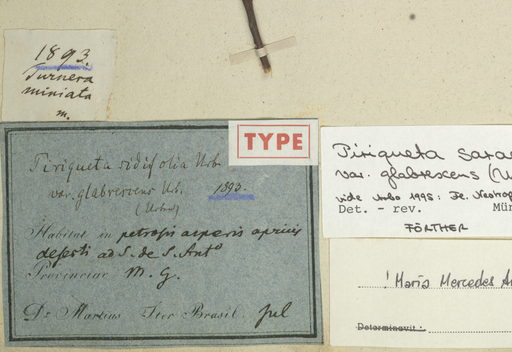 1893.
Turnera
miniata
m.
TYPE
Piriqueta sidifolia Urb.
var. glabrescens Ub.
1893.
(Urban)
Habitat in petrosis asperis apricis
deserti ad S. de S. Antº
Provinciae M. G.
Dr Martius Iter Brasil. Jul
Piriqueta sarae
var. glabrescens (U
vide Arbo 1995: Fl. Neotrop
Det. - rev. Mün
FÖRTHER
! María Mercedes Ar
Determinavit: